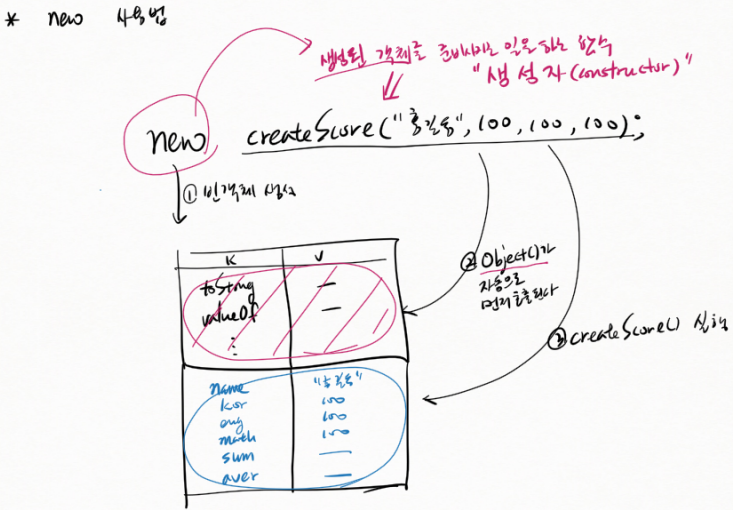 * new 사용법
생성된 객체를 준비시키는 일을 하는 함수
"생성자(constructor)"
new createScore("홍길동", 100, 100, 100);
① 빈객체 생성
K V
toString —
valueOf —
:
② Object()가
자동으로
먼저 호출된다
③ createScore() 실행
name "홍길동"
kor 100
eng 100
math 100
sum —
aver —